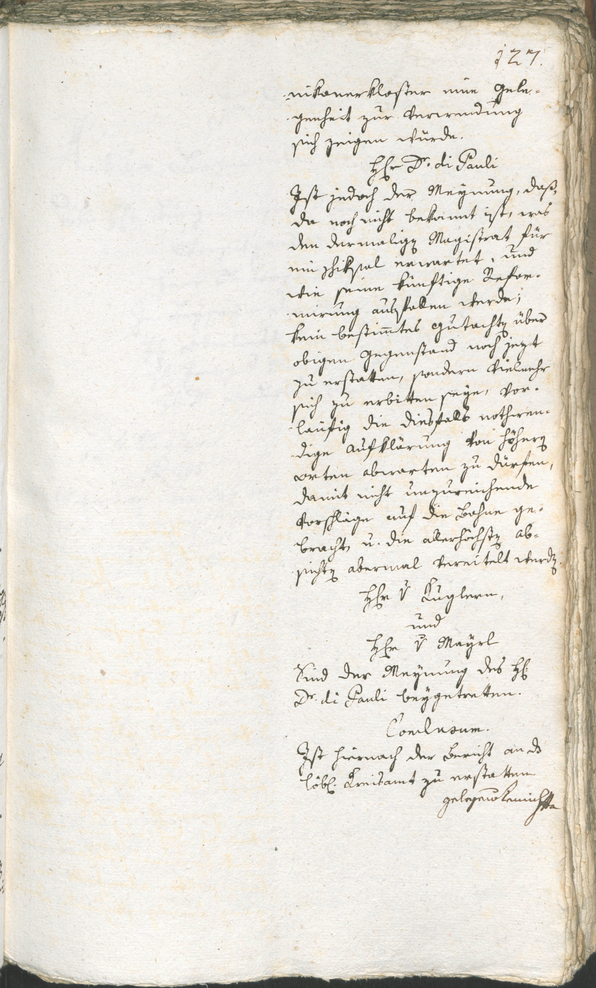 127.
nikanerkloster eine gele-
genheit zur Verwendung
sich zeigen würde.
Hr Dr. di Pauli
Ist jedoch der Meynung, daß,
da noch nicht bekannt ist, was
den dermalign Magistrat für
ein schiksal erwartet, und
wie seine künftige Refor-
mirung ausfallen werde;
kein bestimtes gutachtn über
obigen gegenstand noch jezt
zu erstatten, sondern vielmehr
sich zu erbitten seye, vor-
läufig die diesfalls nothwen-
dige aufklärung von höhern
orten abwarten zu dürfen,
damit nicht unzureichende
Vorschläge auf die Bahne ge-
bracht, u. die allerhöchstn ab-
sichtn abermal vereitelt werdn.
Hr v Kuglern,
und
Hr v Mayrl
Sind der Meynung des H
Dr. di Pauli beygetreten.
Conclusum.
Ist hiernach der Bericht an das
löbl. Kreisamt zu erstatten